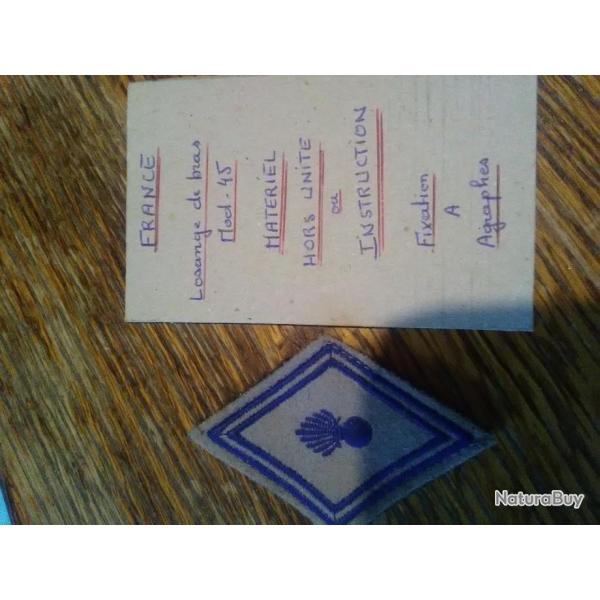 FRANCE
Losange de bras
Mod. 45
MATERIEL
HORS UNITE
ou
INSTRUCTION
Fixation
A
Agraphes
NaturaBuy